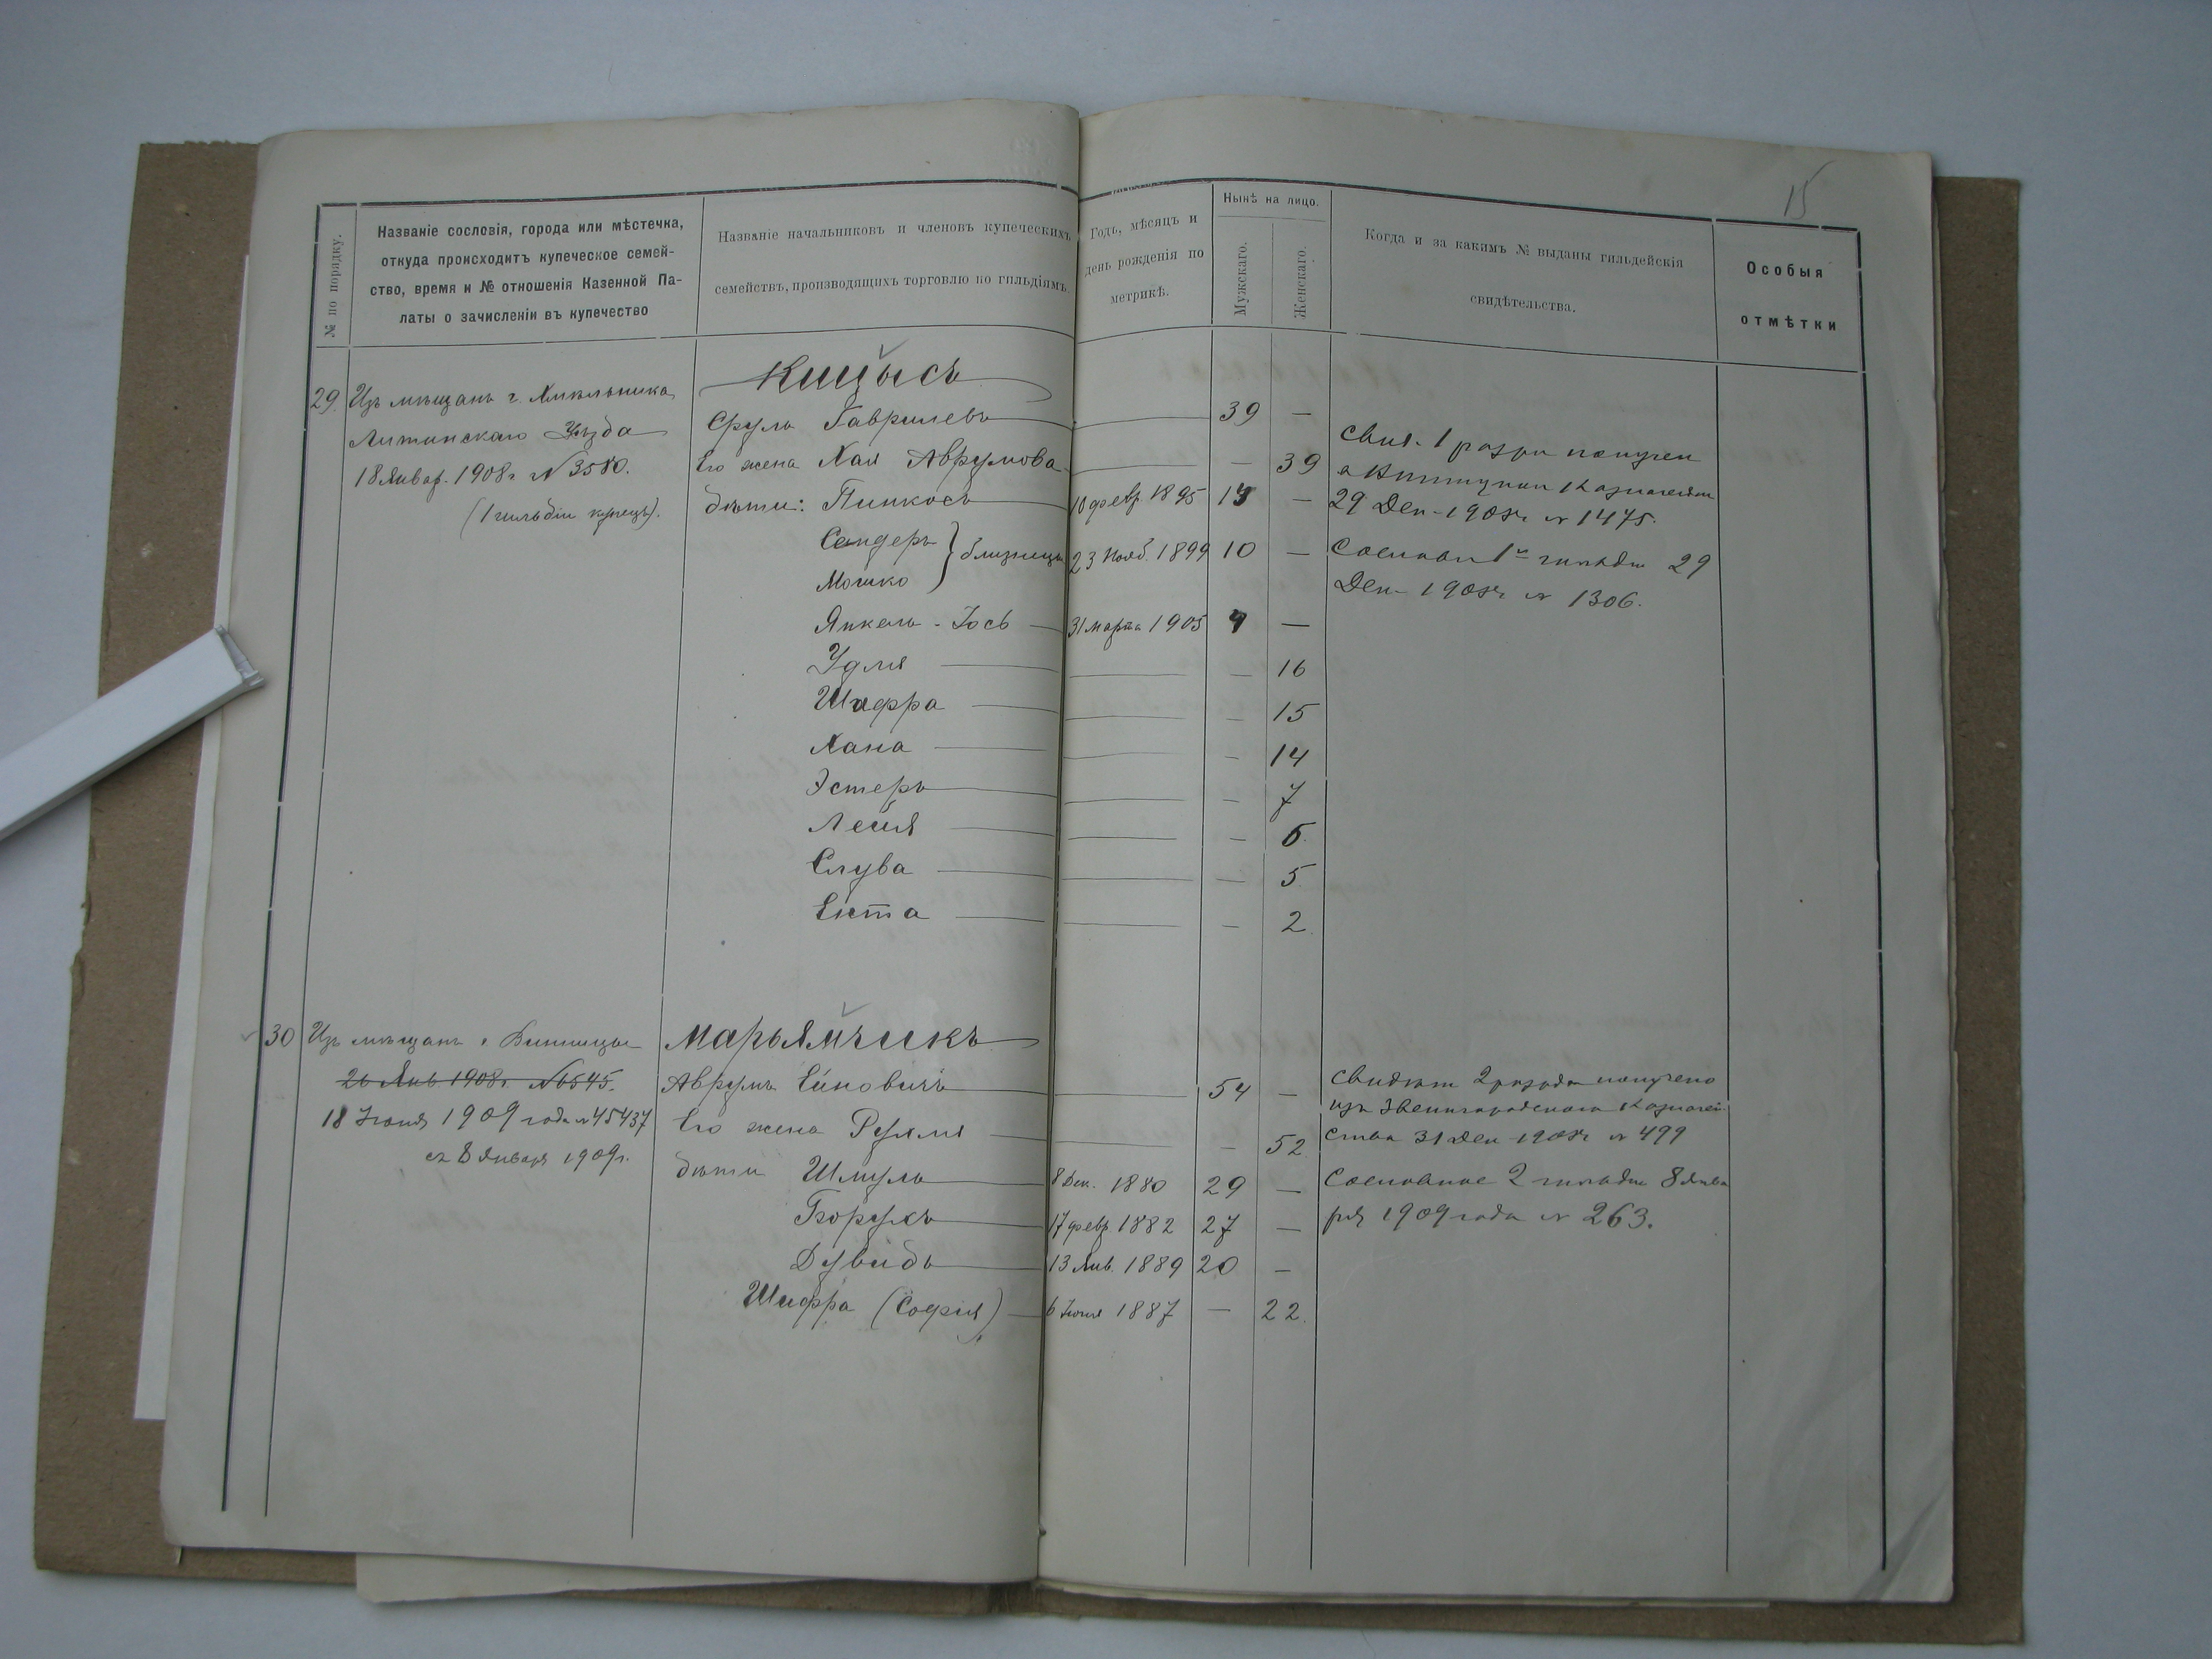 15
№ по порядку.
Названіе сословія, города или мѣстечка,
откуда происходитъ купеческое семей-
ство, время и № отношенія Казенной Па-
латы о зачисленіи въ купечество
Названіе начальниковъ и членовъ купеческихъ
семействъ, производящихъ торговлю по гильдіямъ.
Годъ, мѣсяцъ и
день рожденія по
метрикѣ.
Нынѣ на лицо.
Мужскаго.
Женскаго.
Когда и за какимъ № выданы гильдейскія
свидѣтельства.
Особыя
отмѣтки
29.
Изъ мѣщанъ г. Хмельника
Литинскаго Уѣзда
18 Январ. 1908 г. № 3580.
(1 гильдіи купецъ).
Сруль Гаврилевъ — 39 —
Его жена Хая Аврумова — — 39
дѣти: Пинкосъ 10 февр 1895 13 —
Сендеръ } близнецы 23 Нояб. 1899 10 —
Мошко
Янкель-Іось 31 марта 1905 4 —
Удля — — 16
Шифра — — 15
Хана — — 14
Эстеръ — — 7
Лейя — — 6.
Слува — — 5
Ента — — 2.
Свид. 1 разря получен
29 Дек. 1908 г № 1475.
Сословн 1й гильдіи 29
Дек. 1908 г № 1306.
30
Изъ мѣщанъ г. Винницы
26 Янв 1908 г. № 6545.
18 Іюня 1909 года № 45437
съ 8 Января 1909 г.
Марьямчикъ
Аврумъ Ейновичъ — 54 —
Его жена Рухля — — 52
дѣти Шмуль 8 Дек. 1880 29 —
Борухъ 17 февр 1882 27 —
Дувидъ 13 Янв. 1889 20 —
Шифра (Софія) 6 Іюня 1887 — 22.
Свидѣт 2 разряда получено
изъ Звенигородскаго Казначей
ства 31 Дек 1908 г № 499
Сословное 2 гильдіи 8 Янва
ря 1909 года № 263.